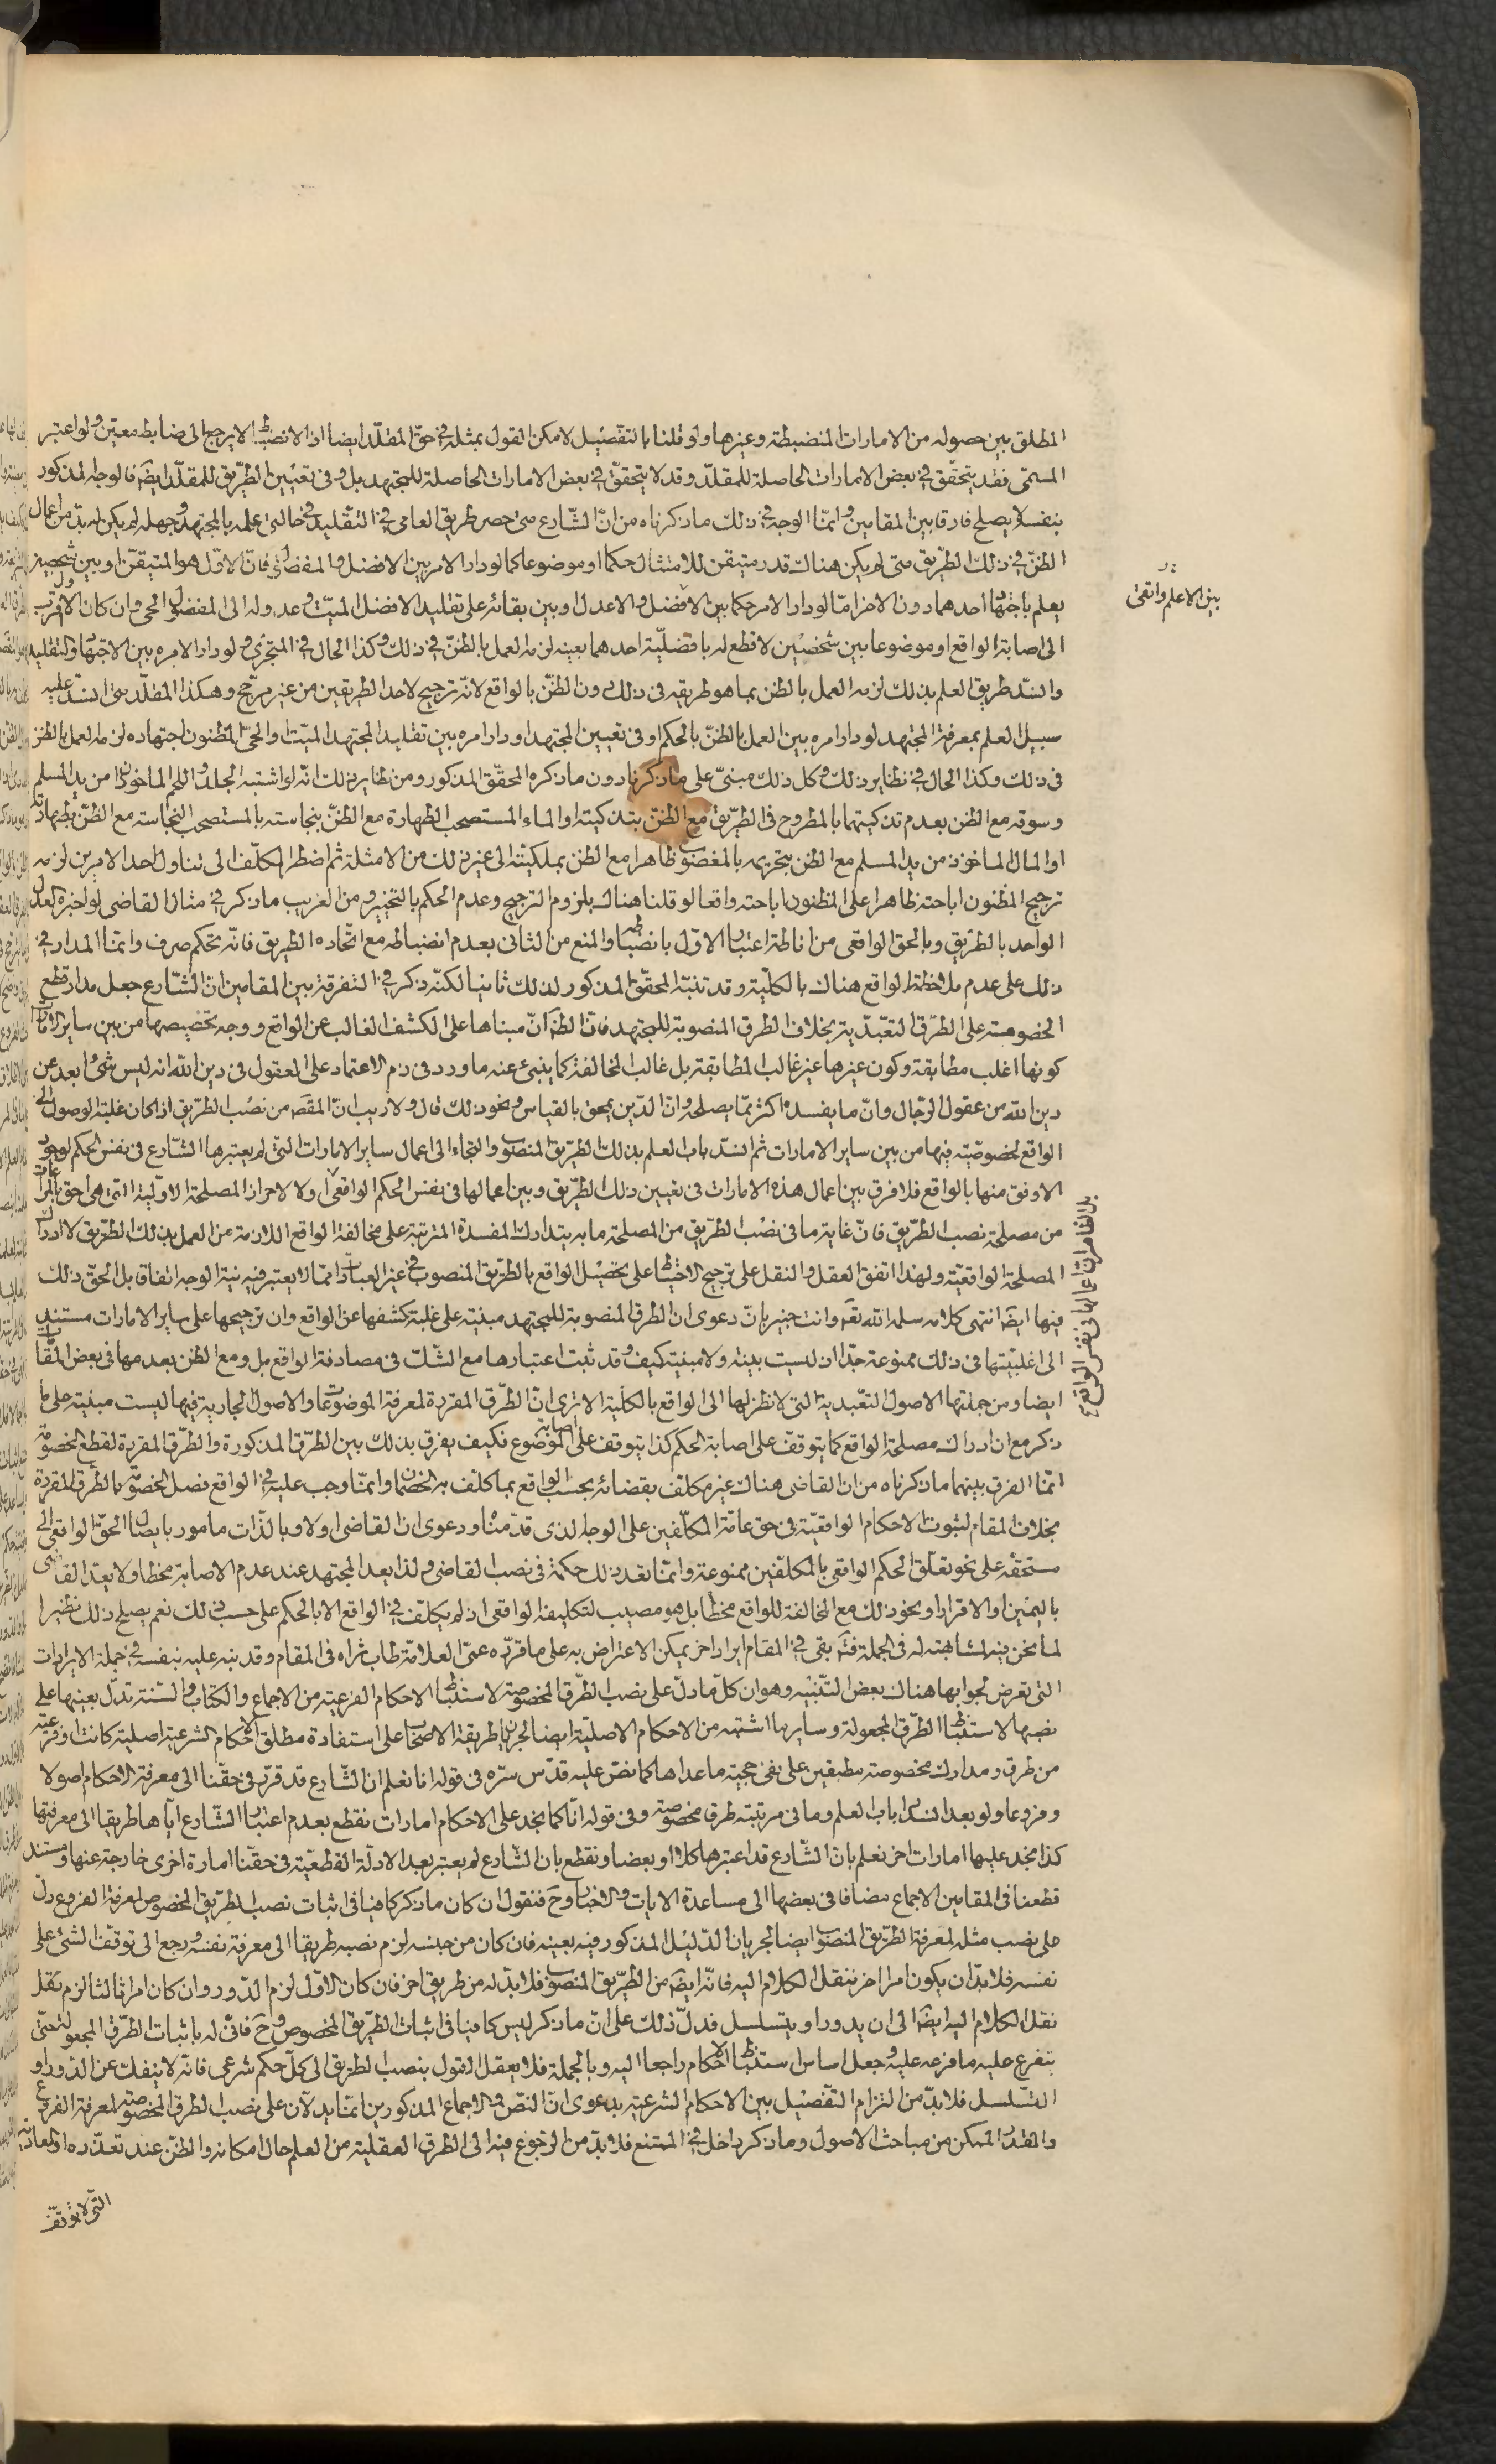 المطلق بين حصوله من الامارات المنضبطة وغيرها ولو قلنا بالتفصيل لامكن القول بمثله في حق المقلد ايضا اذ الانضباط لا يرجع الى ضابط معين ولو اعتبر
المسمى فقد يتحقق في بعض الامارات الحاصلة للمقلد وقد لا يتحقق في بعض الامارات الحاصلة للمجتهد بل وفى تعيين الطريق للمقلد ايضا فالوجه المذكور
بنفسه لا يصلح فارقا بين المقامين وانما الوجه في ذلك ما ذكرناه من ان الشارع متى حصر طريق العامى في التقليد في حالتى علمه بالمجتهد وجهله لم يكن له بد من اعمال
الظن في ذلك الطريق متى لم يكن هناك قدر متيقن للامتثال حكما او موضوعا كما لو دار الامر بين الافضل والمفضول فان الاول هو المتيقن او بين شخصين
يعلم باجتهاد احدهما دون الاخر اما لو دار الامر حكما بين الافضل والاعدل او بين بقائه على تقليد الافضل الميت وعدوله الى المفضول الحى وان كان الاول اقرب
الى اصابة الواقع او موضوعا بين شخصين لا قطع له بافضلية احدهما بعينه لزمه العمل بالظن في ذلك وكذا الحال في المتجزى ولو دار الامر بين الاجتهاد والتقليد
وانسد طريق العلم بذلك لزمه العمل بالظن بما هو طريقه فى ذلك دون الظن بالواقع لانه ترجيح لاحد الطريقين من غير مرجح وهكذا المقلد متى انسد عليه
سبيل العلم بمعرفة المجتهد لو دار امره بين العمل بالظن بالحكم او فى تعيين المجتهد او دار امره بين تقليد المجتهد الميت والحى المظنون اجتهاده لزمه العمل بالظن
فى ذلك وكذا الحال في نظاير ذلك وكل ذلك مبنى على ما ذكرنا دون ما ذكره المحقق المذكور ومن نظاير ذلك انه لو اشتبه الجلد واللحم الماخوذ من يد المسلم
وسوقه مع الظن بعدم تذكيتهما بالمطروح فى الطريق مع الظن بتذكيته او الماء المستصحب الطهارة مع الظن بنجاسته بالمستصحب النجاسة مع الظن بطهارته
او المال الماخوذ من يد المسلم مع الظن بتحريمه بالمغصوب ظاهرا مع الظن بملكيته الى غير ذلك من الامثلة ثم اضطر المكلف الى تناول احد الامرين لزمه
ترجيح المظنون اباحته ظاهرا على المظنون اباحته واقعا لو قلنا هناك بلزوم الترجيح وعدم الحكم بالتخيير ومن الغريب ما ذكر في مثال القاضى لو اخبره العدل
الواحد بالطريق وبالحق الواقعى من اناطة اعتبار الاول بانضباطه والمنع من الثانى بعدم انضباطه مع اتحاد الطريق فانه تحكم صرف وانما المدار في
ذلك على عدم ملاحظة الواقع هناك بالكلية وقد تنبه المحقق المذكور لذلك ثانيا لكنه ذكر في التفرقة بين المقامين ان الشارع جعل مدار قطع
الخصومة على الطرق التعبدية بخلاف الطرق المنصوبة للمجتهد فان الظ ان مبناها على الكشف الغالب عن الواقع ووجه تخصيصها من بين ساير الامارات
كونها اغلب مطابقة وكون غيرها غير غالب المطابقة بل غالب المخالفة كما ينبئ عنه ما ورد فى ذم الاعتماد على المعقول فى دين الله انه ليس شئ ابعد عن
دين الله من عقول الرجال وان ما يفسده اكثر مما يصلحه وان الدين يمحق بالقياس ونحو ذلك قال ولا ريب ان المقصود من نصب الطريق اذا كان غلبة الوصول الى
الواقع لخصوصية فيها من بين ساير الامارات ثم انسد باب العلم بذلك الطريق المنصوب والتجاء الى اعمال ساير الامارات التى لم يعتبرها الشارع فى نفس الحكم لوجود
الاوفق منها بالواقع فلا فرق بين اعمال هذه الامارات فى تعيين ذلك الطريق وبين اعمالها فى نفس الحكم الواقعى ولا لاحراز المصلحة الاولية التى هى احق بالمراعات
من مصلحة نصب الطريق فان غاية ما فى نصب الطريق من المصلحة ما به يتدارك المفسدة المترتبة على مخالفة الواقع اللازمة من العمل بذلك الطريق لا ادراك
المصلحة الواقعية ولهذا اتفق العقل والنقل على ترجيح الاحتياط على تحصيل الواقع بالطريق المنصوب في غير العبادات مما لا يعتبر فيه نية الوجه اتفاقا بل الحق ذلك
فيها ايضا انتهى كلامه سلمه الله تعه وانت خبير بان دعوى ان الطرق المنصوبة للمجتهد مبنية على غلبة كشفها عن الواقع وان ترجيحها على ساير الامارات مستند
الى اغلبيتها فى ذلك ممنوعة جدا اذ ليست بينة ولا مبينة كيف وقد ثبت اعتبارها مع الشك فى مصادفة الواقع بل ومع الظن بعدمها فى بعض المقامات
ايضا ومن جملتها الاصول التعبدية التى لا نظر لها الى الواقع بالكلية الا ترى ان الطرق المقررة لمعرفة الموضوعات والاصول الجارية فيها ليست مبنية على ما
ذكر مع ان ادراك مصلحة الواقع كما يتوقف على اصابة الحكم كذا يتوقف على اصابة الموضوع فكيف يفرق بذلك بين الطرق المذكورة والطرق المقررة لقطع الخصومة
انما الفرق بينهما ما ذكرناه من ان القاضى هناك غير مكلف بقضائه بحسب الواقع بما كلف به الخصمان وانما وجب عليه في الواقع فصل الخصومة بالطرق المقررة
بخلاف المقام لثبوت الاحكام الواقعية فى حق عامة المكلفين على الوجه الذى قدمناه ودعوى ان القاضى اولا وبالذات مامور بايصال الحق الواقعى الى
مستحقه على نحو تعلق الحكم الواقعى بالمكلفين ممنوعة وانما تعد ذلك حكمة فى نصب القاضى ولذا يعد المجتهد عند عدم الاصابة مخطئا ولا يعد القاضى
باليمين او الاقرار او نحو ذلك مع المخالفة للواقع مخطئا بل هو مصيب لتكليفه الواقعى اذ لم يكلف في الواقع الا بالحكم على حسب ذلك نعم يصلح ذلك نظيرا
لما نحن فيه لمشابهته له فى الجملة ثم بقى في المقام ايراد اخر يمكن الاعتراض به على ما قرره عمى العلامة طاب ثراه فى المقام وقد نبه عليه بنفسه في جملة الايرادات
التى تعرض لجوابها هناك بعض التنبيه وهو ان كل ما دل على نصب الطرق المخصوصة لاستنباط الاحكام الفرعية من الاجماع والكتاب والسنة تدل بعينها على
نصبها لاستنباط الطرق المجعولة وساير ما اشتبه من الاحكام الاصلية ايضا لجريان طريقة الاصحاب على استفادة مطلق الاحكام الشرعية اصلية كانت او فرعية
من طرق ومدارك مخصوصة مطبقين على نفى حجية ما عداها كما نص عليه قدس سره فى قوله انا نعلم ان الشارع قد قرر فى حقنا الى معرفة الاحكام اصولا
وفروعا ولو بعد انسداد باب العلم وما فى مرتبته طرق مخصوصة وفى قوله انا كما نجد على الاحكام امارات نقطع بعدم اعتبار الشارع اياها طريقا الى معرفتها
كذا نجد عليها امارات اخر نعلم بان الشارع قد اعتبرها كلا او بعضا ونقطع بان الشارع لم يعتبر بعد الادلة القطعية فى حقنا امارة اخرى خارجة عنها ومستند
قطعنا فى المقامين الاجماع مضافا فى بعضها الى مساعدة الايات والاخبار وح فنقول ان كان ما ذكر كافيا فى اثبات نصب الطريق المخصوص لمعرفة الفروع دل
على نصب مثله لمعرفة الطريق المنصوب ايضا لجريان الدليل المذكور فيه بعينه فان كان من جنسه لزم نصبه طريقا الى معرفة نفسه ورجع الى توقف الشئ على
نفسه فلا بد ان يكون امرا اخر ننقل الكلام اليه فانه ايضا من الطريق المنصوب فلا بد له من طريق اخر فان كان الاول لزم الدور وان كان امرا ثالثا لزم نقل
نقل الكلام اليه ايضا الى ان يدور او يتسلسل فدل ذلك على ان ما ذكر ليس كافيا فى اثبات الطريق المخصوص وح فانى له باثبات الطرق المجعولة حتى
يتفرع عليه ما فرعه عليه وجعل اساس استنباط الاحكام راجعا اليه وبالجملة فلا يعقل القول بنصب الطريق الى كل حكم شرعى فانه لا ينفك عن الدور او
التسلسل فلا بد من التزام التفصيل بين الاحكام الشرعية بدعوى ان النص والاجماع المذكورين انما يدلان على نصب الطرق المخصوصة لمعرفة الفروع
والقدر الممكن من مباحث الاصول وما ذكر داخل في الممتنع فلا بد من الرجوع فيه الى الطرق العقلية من العلم حال امكانه والظن عند تعذره او العادية
التى لا يتوقف
بين الاعلم واتقى